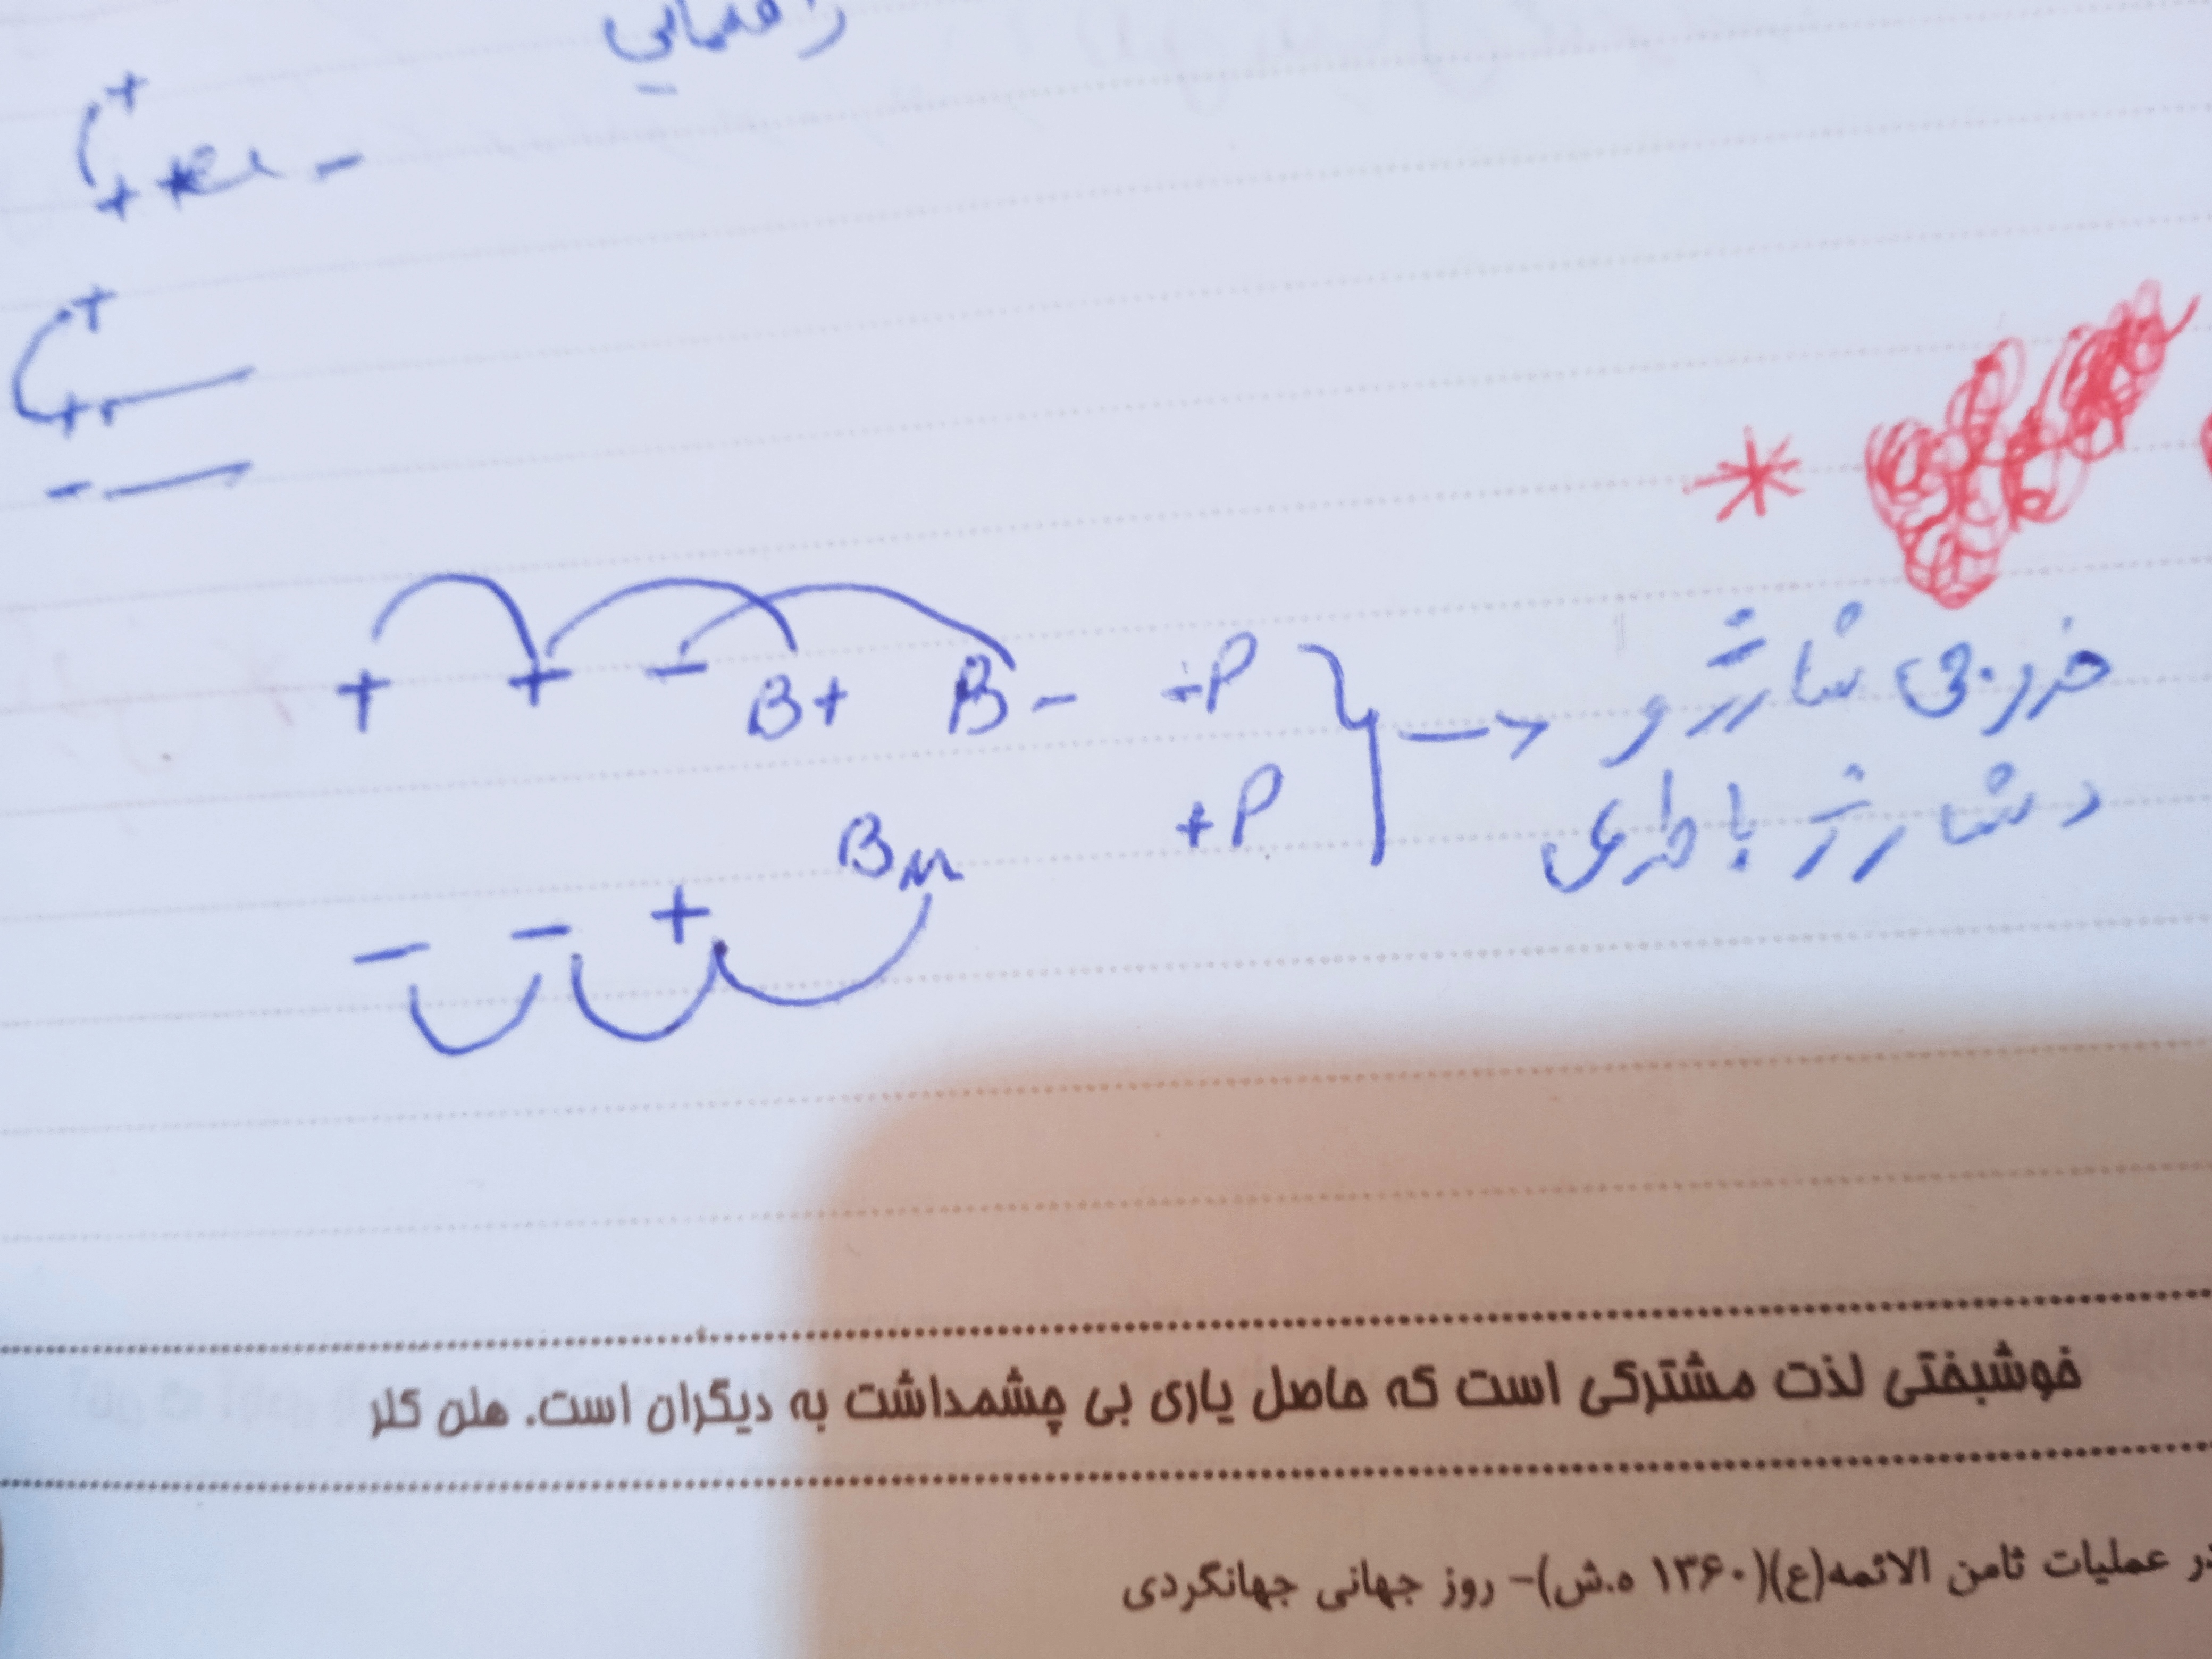 راهنمایی
+
+ -
+
+
-
+ + - B+ B- -P
خروجی شارژ و
+P
دشارژ باطری
BM
- - +
خوشبختی لذت مشترکی است که حاصل یاری بی چشمداشت به دیگران است. هلن کلر
در عملیات ثامن الائمه(ع)(۱۳۶۰ ه.ش)- روز جهانی جهانگردی